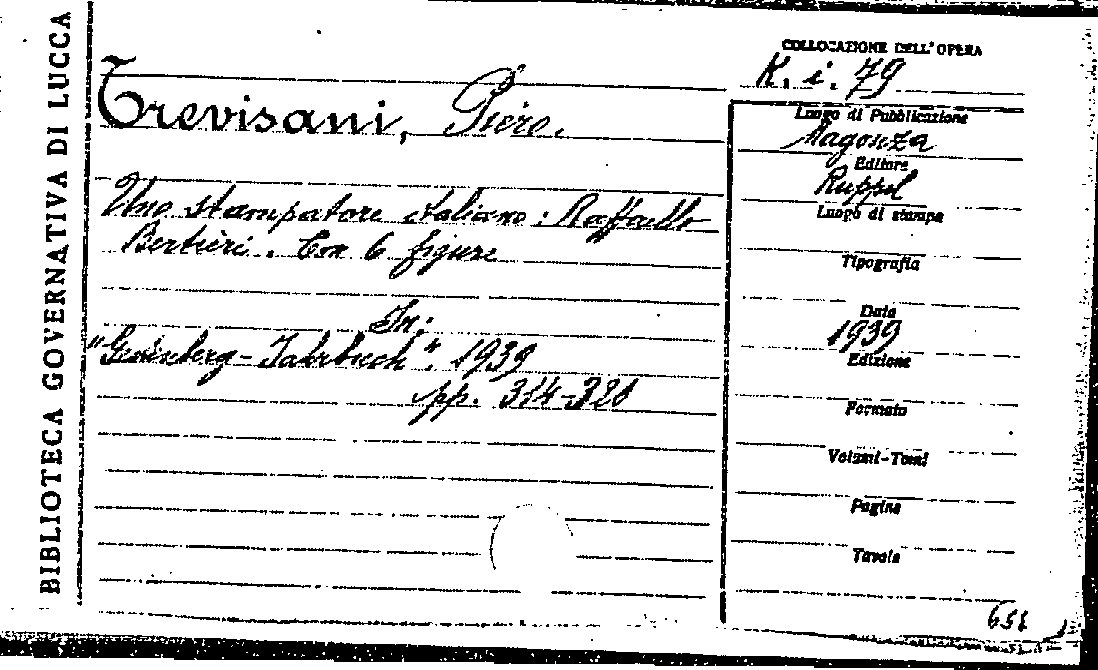 BIBLIOTECA GOVERNATIVA DI LUCCA
Trevisani, Piero.
Uno stampatore italiano: Raffaello
Bertieri. Con 6 figure
In:
"Gutenberg-Jahrbuch". 1939
pp. 314-320
COLLOCAZIONE DELL'OPERA
K. i. 79
Luogo di Pubblicazione
Magonza
Editore
Ruppel
Luogo di stampa
Tipografia
Data
1939
Edizione
Formato
Volumi-Tomi
Pagine
Tavole